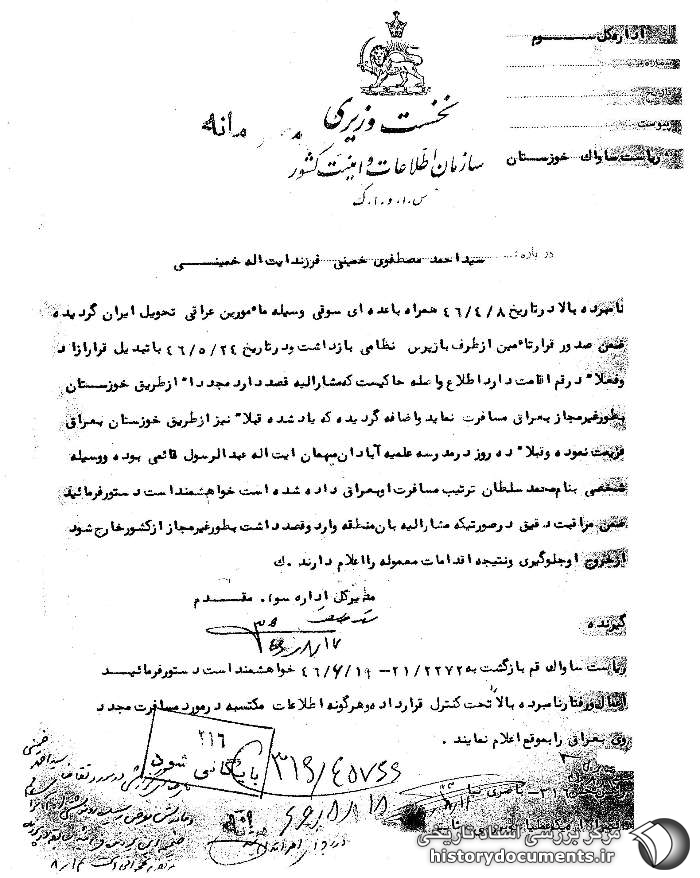 اداره کل سوم
شماره
تاریخ
پیوست
ریاست ساواک خوزستان
نخست وزیری
سازمان اطلاعات و امنیت کشور
س.ا.و.ا.ک
درباره: سید احمد مصطفوی خمینی فرزند ایت اله خمینی
نامبرده بالا در تاریخ ۴۶/۴/۸ همراه با عده ای سوقی وسیله مامورین عراقی تحویل ایران گردیده
ضمن صدور قرار تامین از طرف بازپرس نظامی بازداشت و در تاریخ ۴۶/۵/۲۴ با تبدیل قرار ازاد
و فعلا" در قم اقامت دارد اطلاع واصله حاکیست که مشارالیه قصد دارد مجددا" از طریق خوزستان
بطور غیر مجاز بعراق مسافرت نماید و اضافه گردیده که یاد شده قبلا" نیز از طریق خوزستان بعراق
عزیمت نموده و قبلا" ده روز در مدرسه علمیه آبادان میهمان ایت اله عبدالرسول قائمی بوده و وسیله
شخصی بنام محمد سلطان ترتیب مسافرت او بعراق داده شده است خواهشمند است دستور فرمائید
ضمن مراقبت دقیق در صورتیکه مشارالیه بان منطقه وارد و قصد داشت بطور غیر مجاز از کشور خارج شود
از خروج او جلوگیری و نتیجه اقدامات معموله را اعلام دارند. ک
مدیرکل اداره سوم. مقدم
گیرنده
ریاست ساواک قم بازگشت به ۲۱/۲۲۷۲-۴۶/۶/۱۹ خواهشمند است دستور فرمائید
اعمال و رفتار نامبرده بالا تحت کنترل قرار داده و هرگونه اطلاعات مکتسبه در مورد مسافرت مجدد
وی بعراق را بموقع اعلام نمایند.
۲۱۶
بایگانی شود
مرکز بررسی اسناد تاریخی
historydocuments.ir